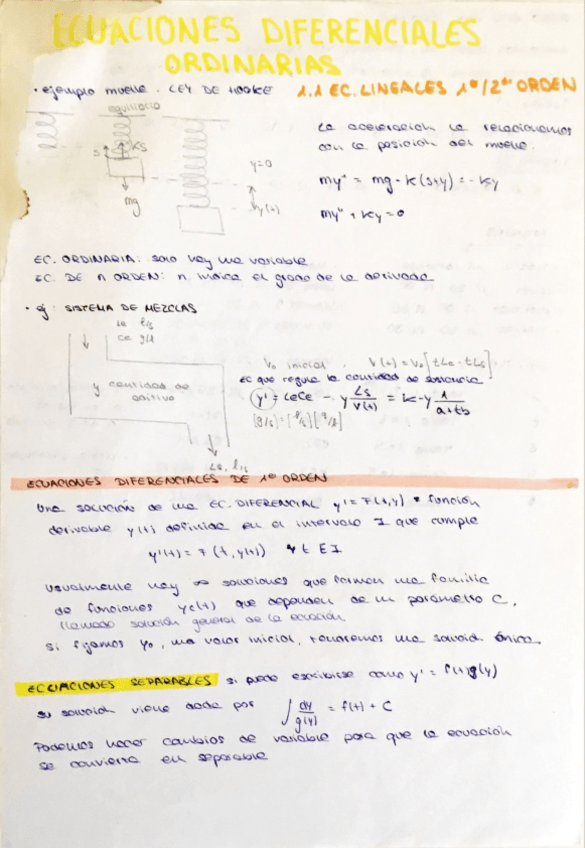 ECUACIONES DIFERENCIALES
ORDINARIAS
· ejemplo muelle. LEY DE HOOKE
1.1 EC. LINEALES 1er/2do ORDEN
equilibrio
s
ks
mg
y=0
y(t)
La aceleración la relacionamos
con la posición del muelle.
my'' = mg - k(s+y) = -ky
my'' + ky = 0
EC. ORDINARIA: solo hay una variable
EC. DE n ORDEN: n. indica el grado de la derivada
· ej: SISTEMA DE MEZCLAS
Le l/s
Ce g/l
y cantidad de
aditivo
Ls, l/s
V₀ inicial. V(t) = V₀[tLe - tLs]
EC que regula la cantidad de sustancia
y' = LeCe - y Ls/V(t) = k - y 1/(a+tb)
[g/s] = [l/s][g/l]
ECUACIONES DIFERENCIALES DE 1er ORDEN
Una solución de una EC. DIFERENCIAL y' = f(t,y) = función
derivable y(t) definida en el intervalo I que cumple
y'(t) = f(t, y(t)) ∀ t ∈ I
Usualmente hay ∞ soluciones que forman una familia
de funciones yc(t) que dependen de un parámetro C,
llamado solución general de la ecuación
si fijamos y₀, un valor inicial, tendremos una solución única.
ECUACIONES SEPARABLES si puede escribirse como y' = f(t)g(y)
su solución viene dada por ∫ dy/g(y) = f(t) + C
Podemos hacer cambios de variable para que la ecuación
se convierta en separable